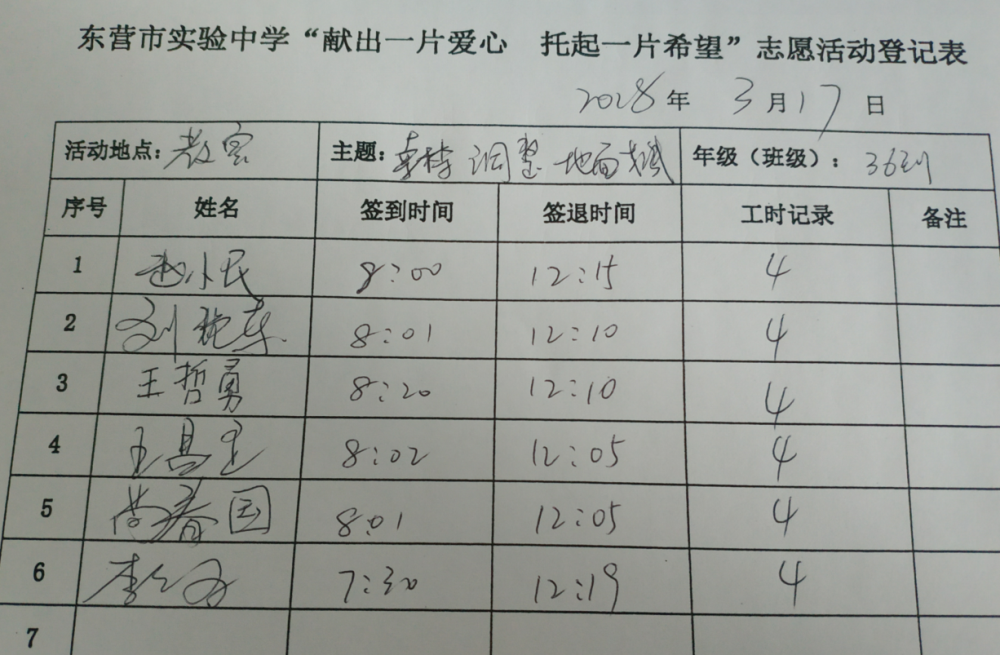 东营市实验中学“献出一片爱心 托起一片希望”志愿活动登记表
2028年 3月17日
活动地点：教室 主题：桌椅调整 地面 年级（班级）：36级
序号 姓名 签到时间 签退时间 工时记录 备注
1 赵小民 8:00 12:15 4
2 刘艳东 8:01 12:10 4
3 王哲勇 8:20 12:10 4
4 王昌 8:02 12:05 4
5 尚春国 8:01 12:05 4
6 李 7:30 12:19 4
7